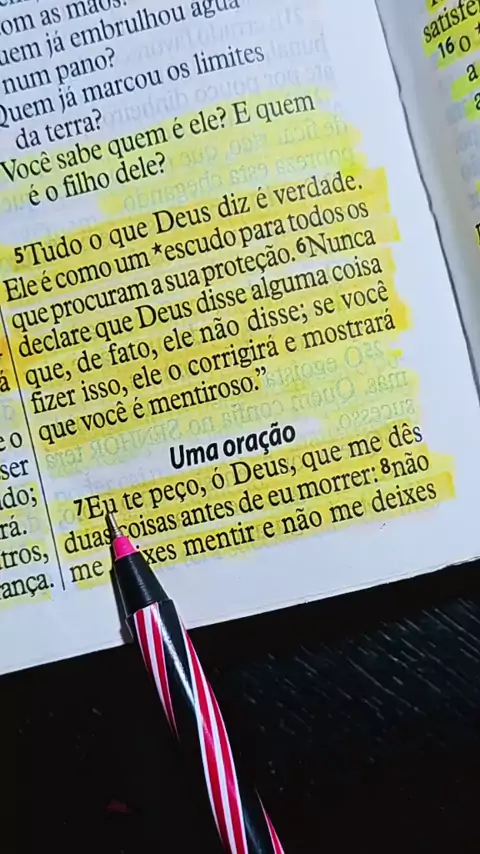 om as mãos?
uem já embrulhou água
num pano?
Quem já marcou os limites
da terra?
Você sabe quem é ele? E quem
é o filho dele?
5Tudo o que Deus diz é verdade.
Ele é como um *escudo para todos os
que procuram a sua proteção. 6Nunca
declare que Deus disse alguma coisa
que, de fato, ele não disse; se você
fizer isso, ele o corrigirá e mostrará
que você é mentiroso.”
Uma oração
7Eu te peço, ó Deus, que me dês
duas coisas antes de eu morrer: 8não
me xes mentir e não me deixes
á
e o
ser
do;
rá.
tros,
ança.
satisfe
16 O
a